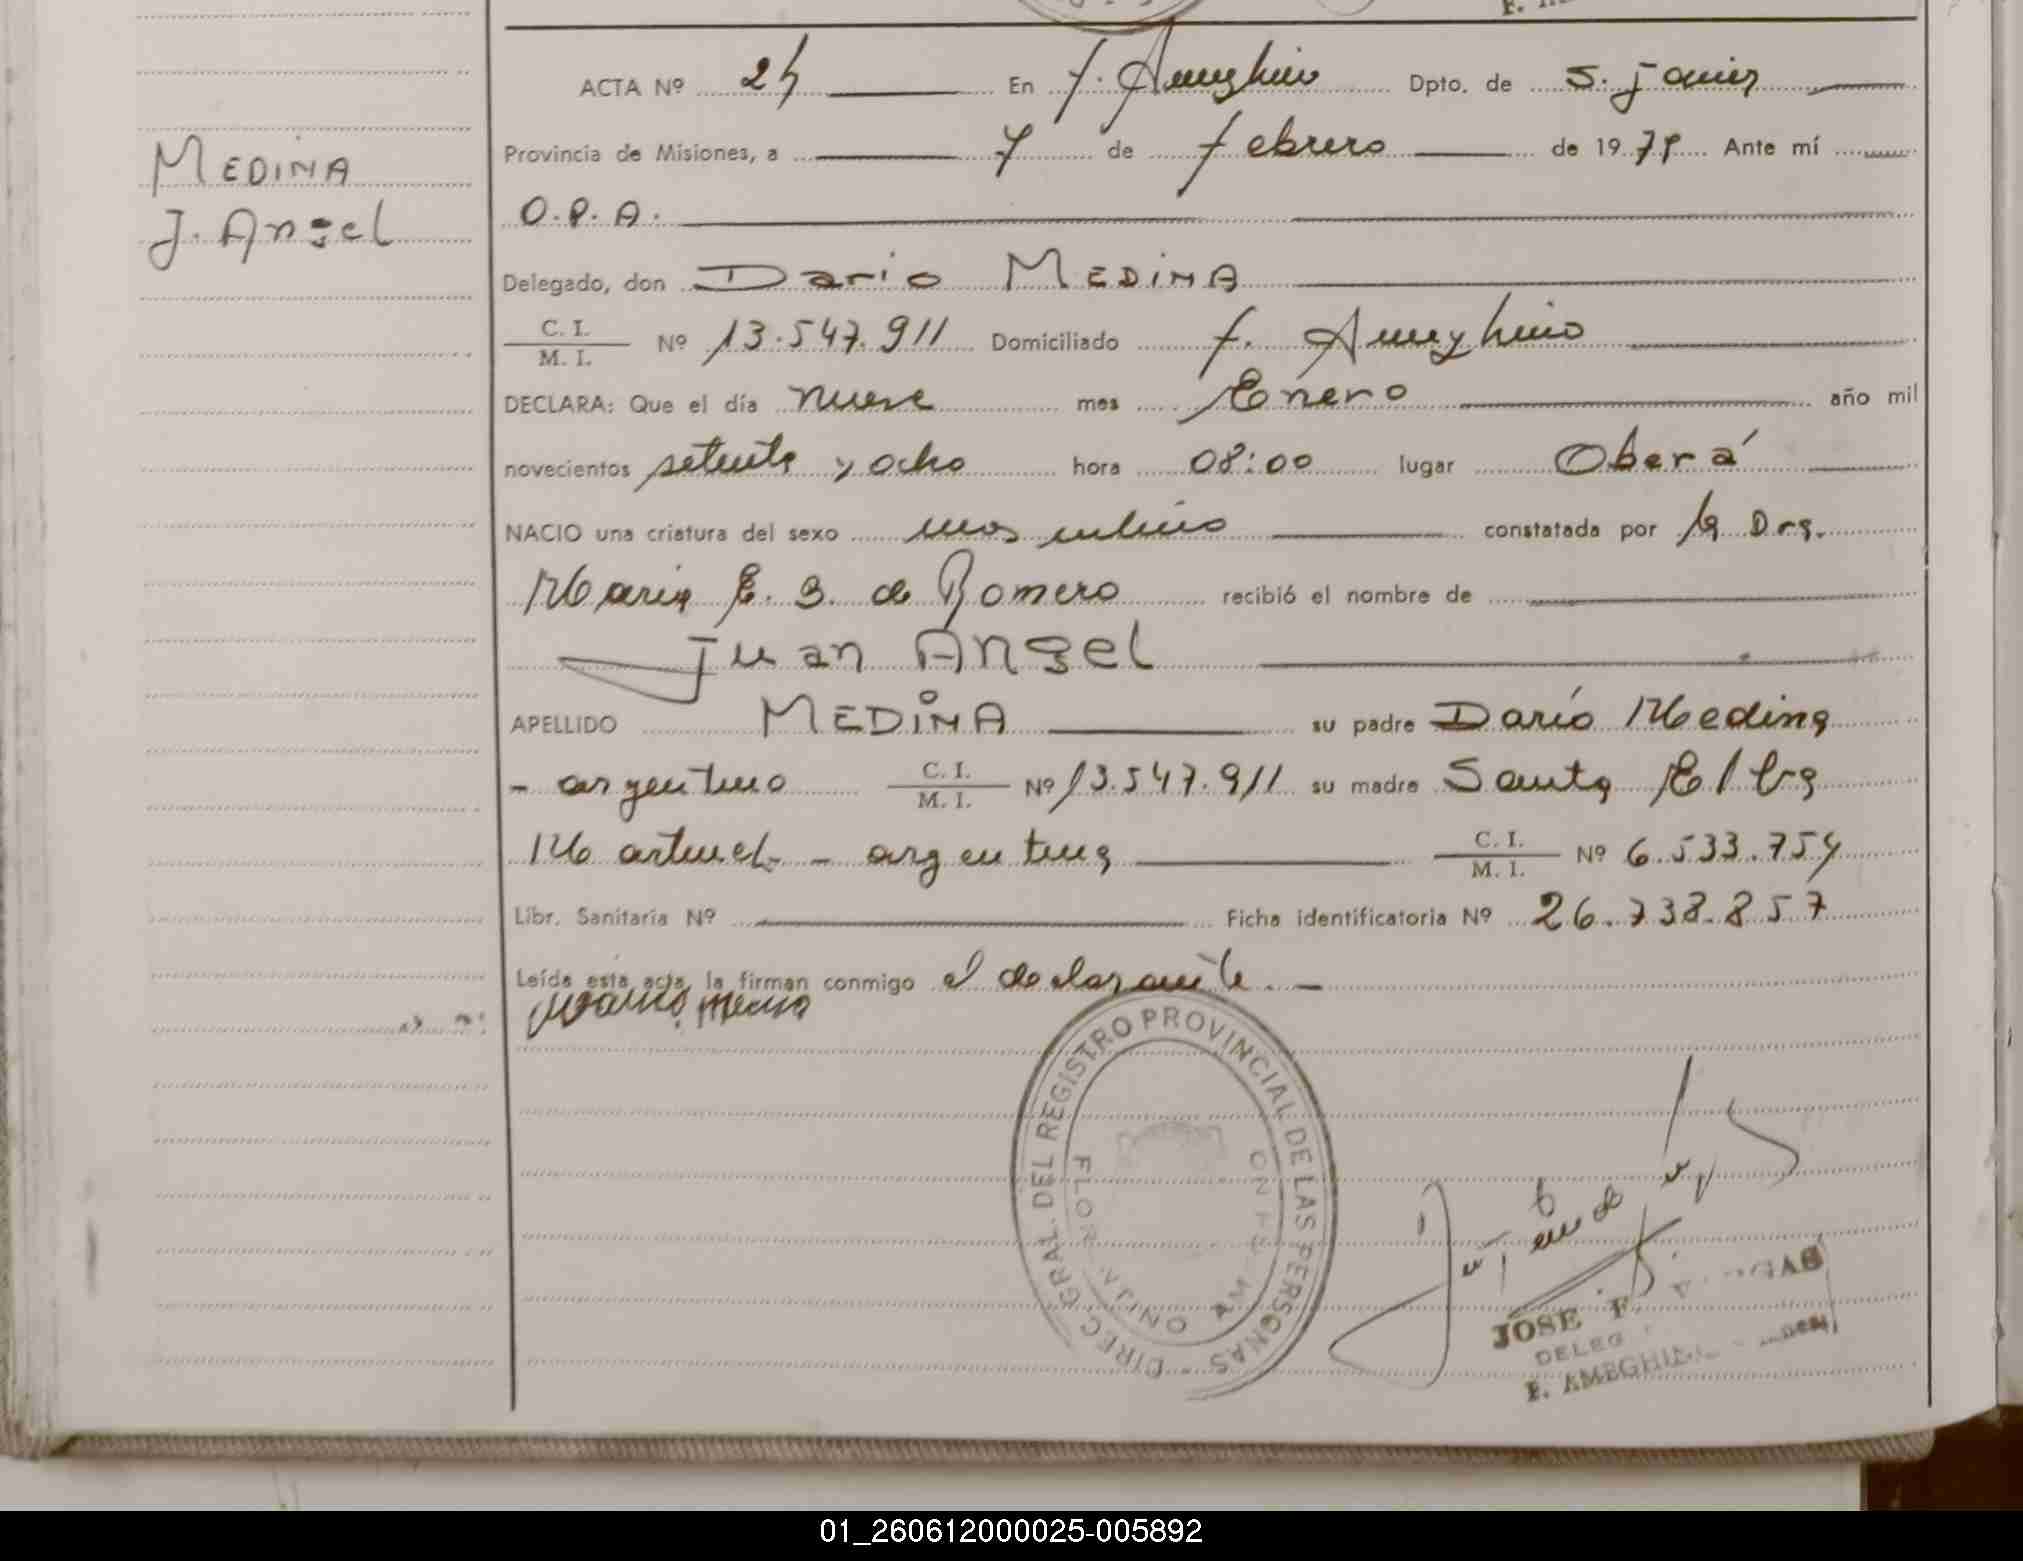 MEDINA
J. Angel
ACTA Nº 24 En F. Ameghino Dpto. de S. Javier
Provincia de Misiones, a 7 de febrero de 1978 Ante mí
O.P.A.
Delegado, don Dario MEDINA
C. I.
M. I. Nº 13.547.911 Domiciliado F. Ameghino
DECLARA: Que el día nueve mes Enero año mil
novecientos setenta y ocho hora 08:00 lugar Oberá
NACIO una criatura del sexo masculino constatada por la Dra.
Maria E. B. de Romero recibió el nombre de
Juan Angel
APELLIDO MEDINA su padre Darío Medina
- argentino C. I. M. I. Nº 13.547.911 su madre Santa Elba
Martinez - argentina C. I. M. I. Nº 6.533.754
Libr. Sanitaria Nº Ficha identificatoria Nº 26.738.857
Leída esta acta, la firman conmigo el declarante. -
DIREC. GRAL. DEL REGISTRO PROVINCIAL DE LAS PERSONAS
JOSE F.
DELEG
F. AMEGHINO
01_260612000025-005892